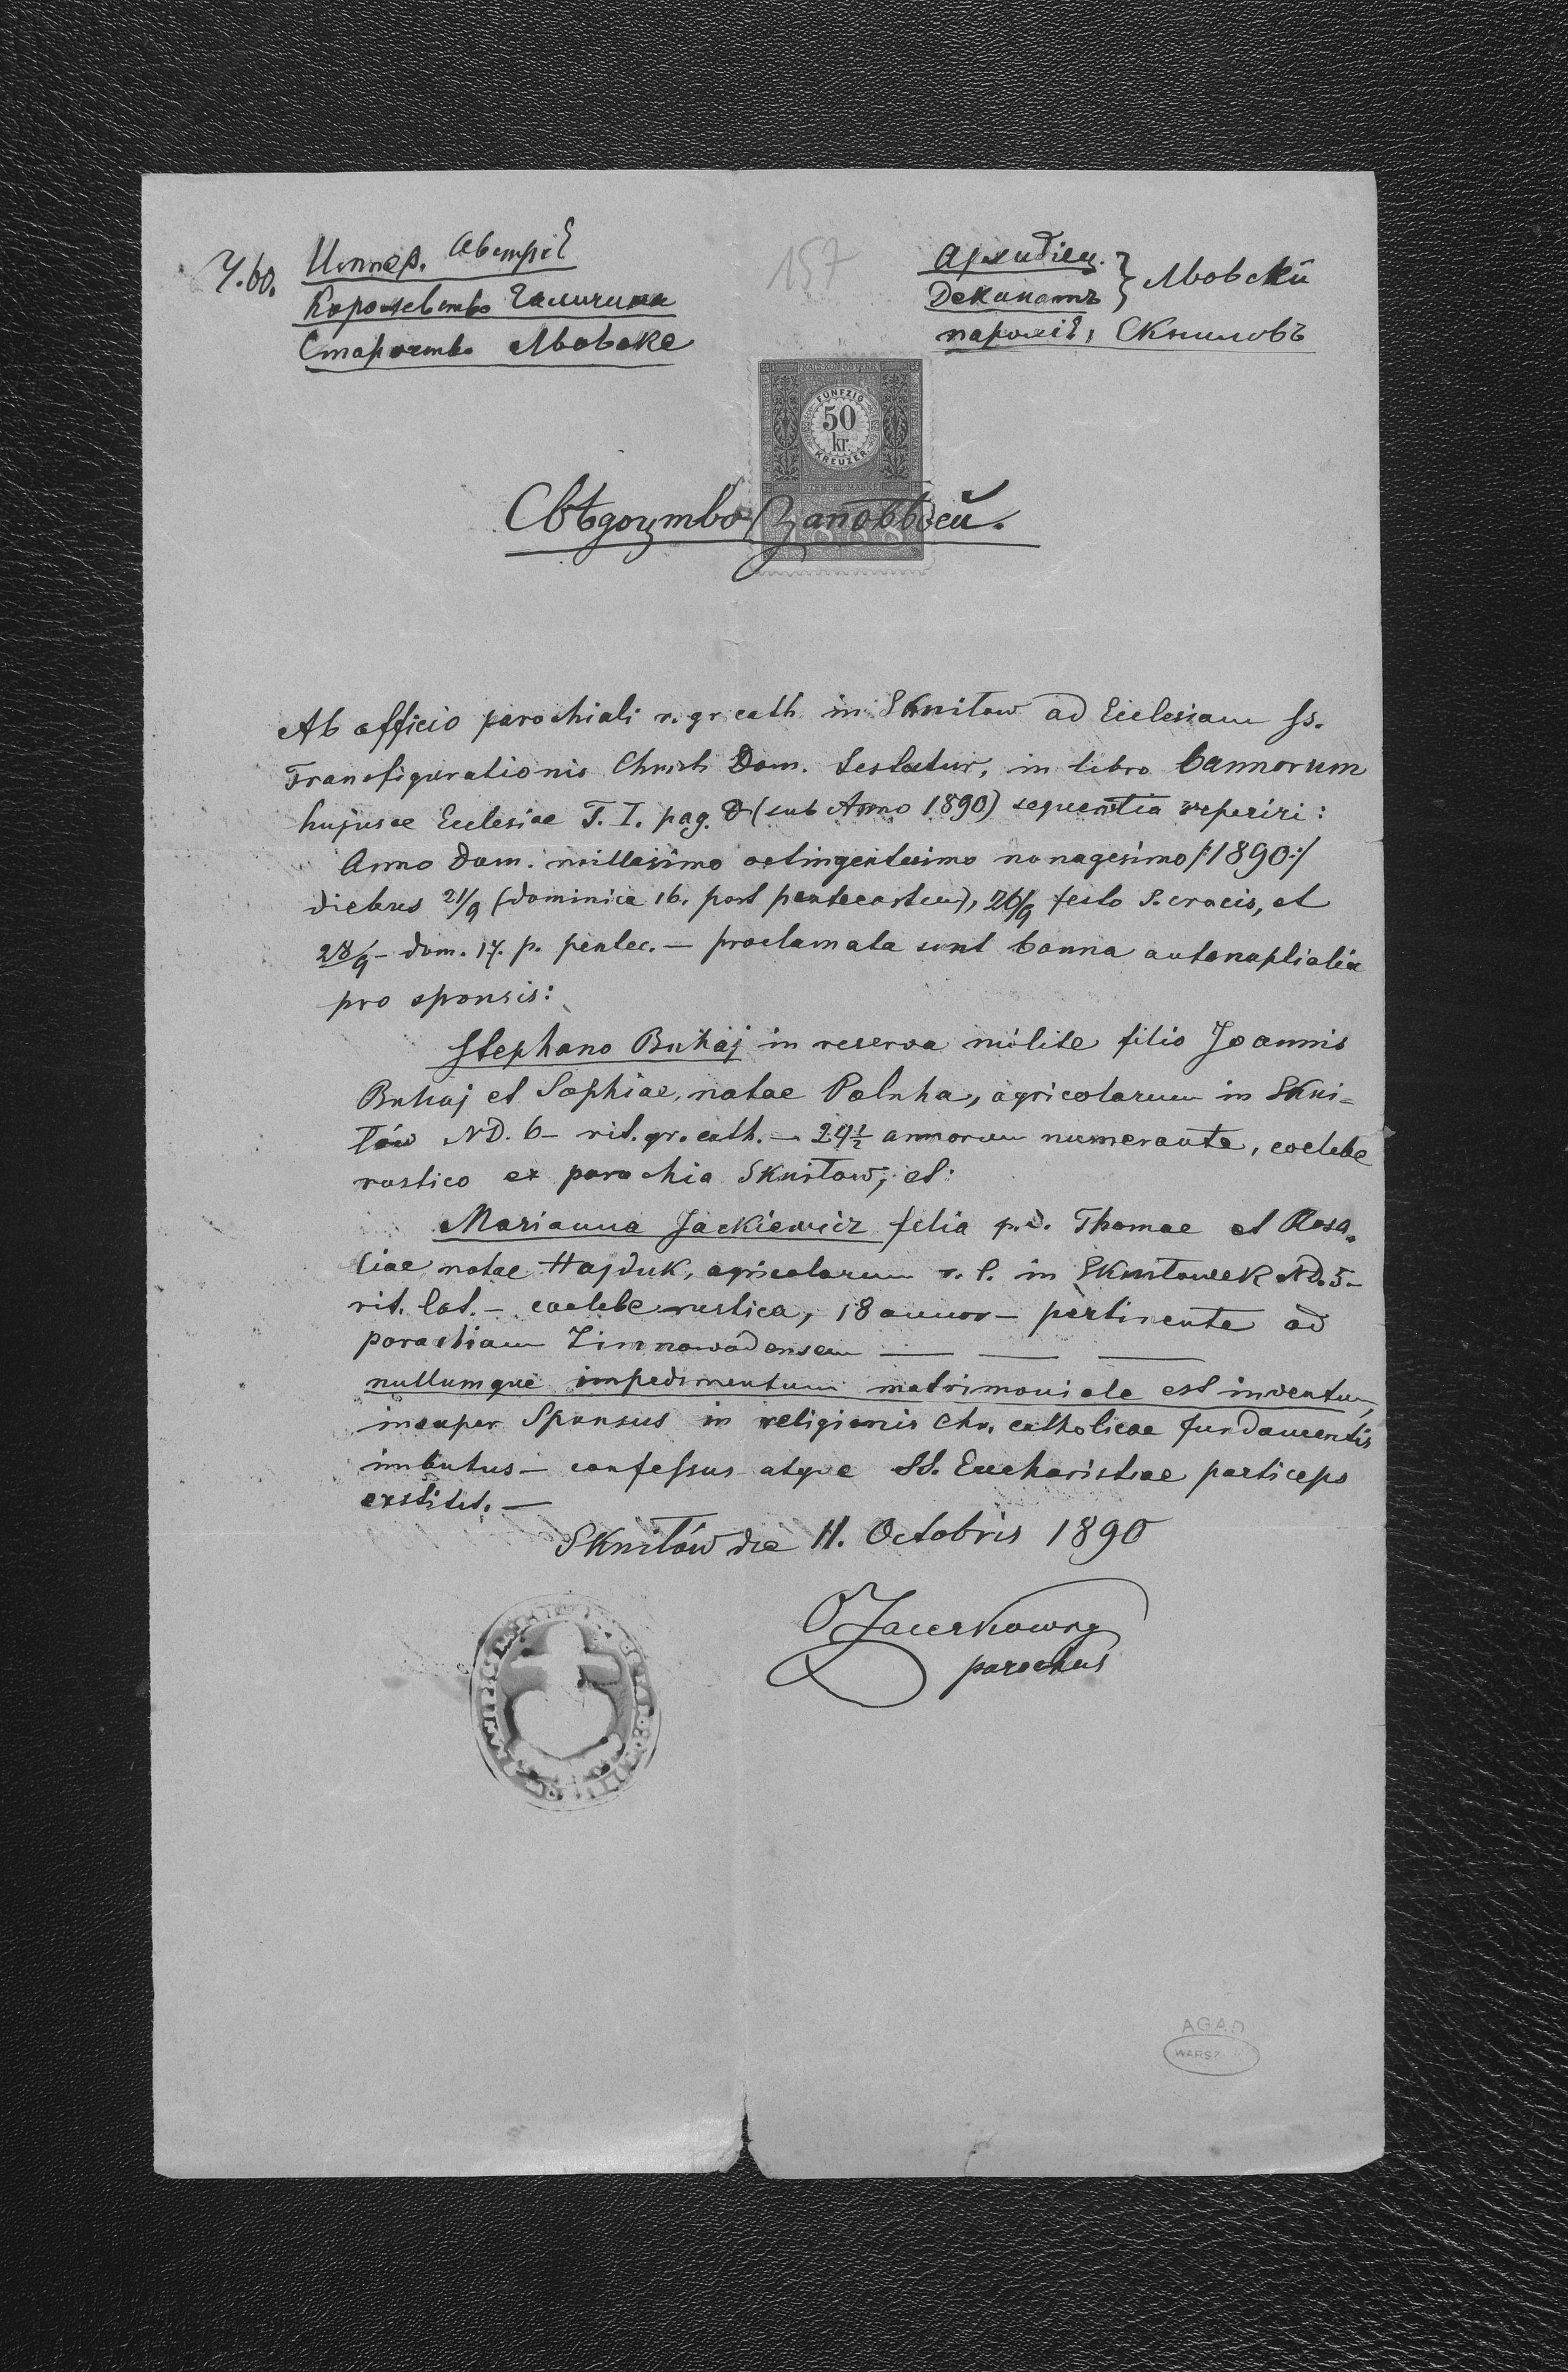 Ч. 60.
Иппер. Австріѣ
Королевство Галичина
Староство Львовске
157
Архидіец.
Деканатъ } Львовскій
парохіѣ, Скниловъ
FÜNFZIG
50
kr.
KREUZER
Свѣдоцтво Заповѣдей.
Ab officio parochiali r. gr. cath. in Skniłow ad Ecclesiam SS.
Transfigurationis Christi Dom. testatur, in libro bannorum
hujusce Ecclesiae T. I. pag. (sub Anno 1890) sequentia reperiri:
Anno Dom. millesimo octingentesimo nonagesimo /:1890:/
diebus 21/9 (dominica 16. post pentecosten), 26/9 festo S. crucis, et
28/9 - dom. 17. p. pentec. — proclamata sunt banna antenuptialia
pro sponsis:
Stephano Buhaj in reserva milite filio Joannis
Buhaj et Sophiae, natae Paluha, agricolarum in Skni=
łów ND. 6 - rit. gr. cath. — 24½ annorum numerante, coelebe
rustico ex parochia Skniłow, et:
Marianna Jackiewicz filia p. d. Thomae et Rosa=
liae natae Hajduk, agricolarum r. l. in Skniłowek ND. 5 -
rit. lat. - coelebe rustica, 18 annor - pertinente ad
parochiam Zimnowodensem — — —
nullumque impedimentum matrimoniale est inventum,
insuper Sponsus in religionis chr. catholicae fundamentis
imbutus — confessus atque SS. Eucharistiae particeps
exstitit. —
Skniłów die 11. Octobris 1890
parochus
AGAD
WARSZ